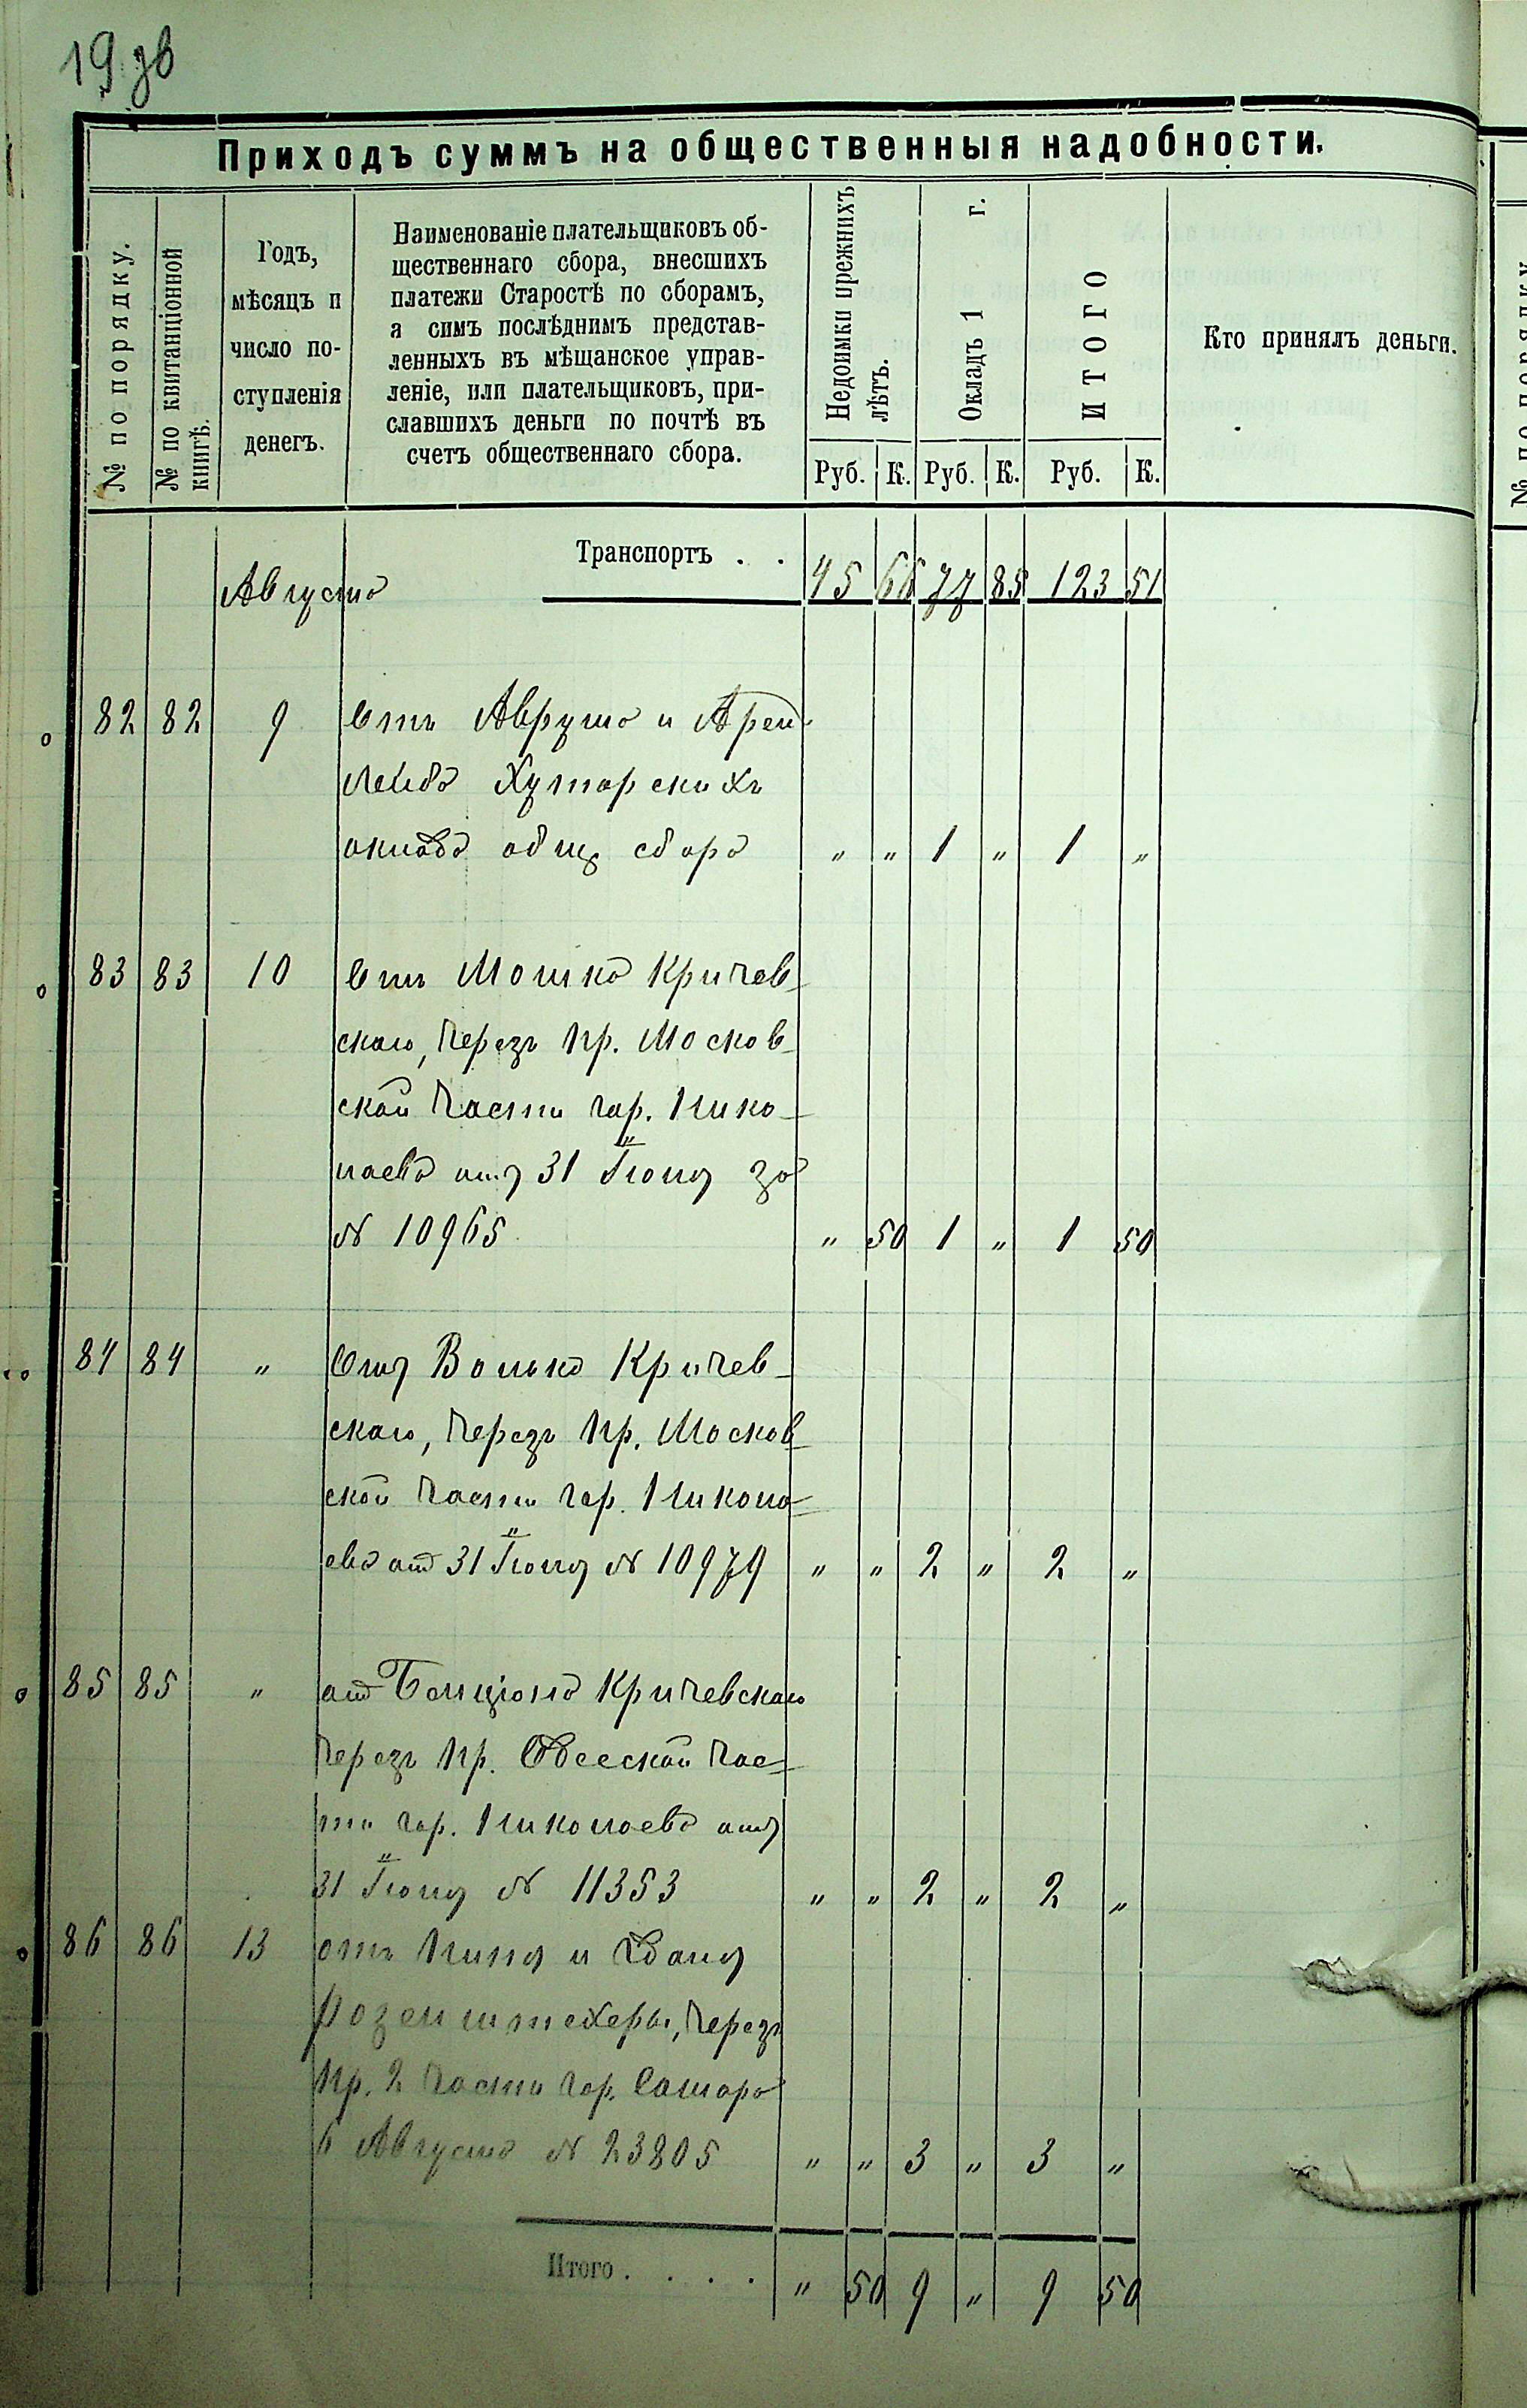 19 зв
Приходъ суммъ на общественныя надобности.
№ по порядку.
№ по квитанціонной книгѣ.
Годъ,
мѣсяцъ и
число по-
ступленія
денегъ.
Наименованіе плательщиковъ об-
щественнаго сбора, внесшихъ
платежи Старостѣ по сборамъ,
а симъ послѣднимъ представ-
ленныхъ въ мѣщанское управ-
леніе, или плательщиковъ, при-
славшихъ деньги по почтѣ въ
счетъ общественнаго сбора.
Недоимки прежнихъ лѣтъ.
Окладъ 1 г.
ИТОГО
Кто принялъ деньги.
Руб. К. Руб. К. Руб. К.
Транспортъ . . 45 66 77 85 123 51
Августа
82 82 9 Отъ Аврума и Арен
Лейба Хутарскихъ
оклада общ сбора " " 1 " 1 "
83 83 10 Отъ Мошка Кричев-
скаго, Через Пр. Москов-
ской Части гор. Нико-
лаева отъ 31 Іюля за
№ 10965 " 50 1 " 1 50
84 84 " Отъ Волько Кричев-
скаго, Через Пр. Москов-
ской Части гор. Никола-
ева отъ 31 Іюля № 10979 " " 2 " 2 "
85 85 " отъ Бенціона Кричевскаго
Через Пр. Одесской Час-
ти гор. Николаева отъ
31 Іюля № 11353 " " 2 " 2 "
86 86 13 отъ и
Розенштехеры, Через
Пр. 2 Части гор. Самара
6 Августа № 23805 " " 3 " 3 "
Итого . . . . " 50 9 " 9 50
№ по порядку